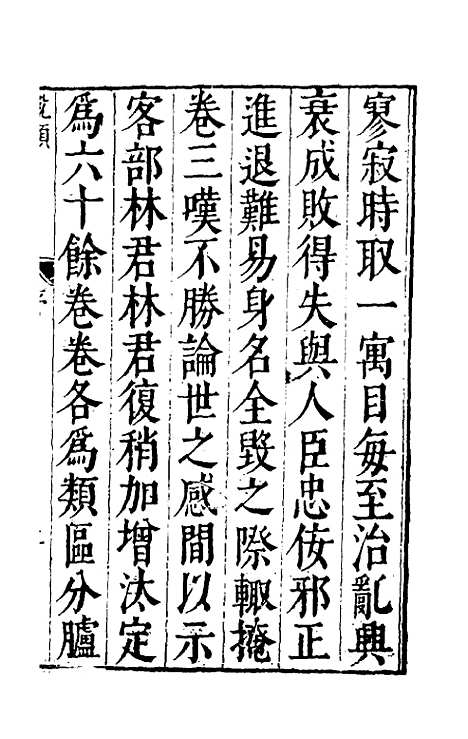 寥寂時取一寓目每至治亂興
衰成敗得失與人臣忠佞邪正
進退難易身名全毀之際輙掩
卷三嘆不勝論世之感間以示
客部林君林君復稍加增汰定
為六十餘卷卷各為類區分臚
說類
序